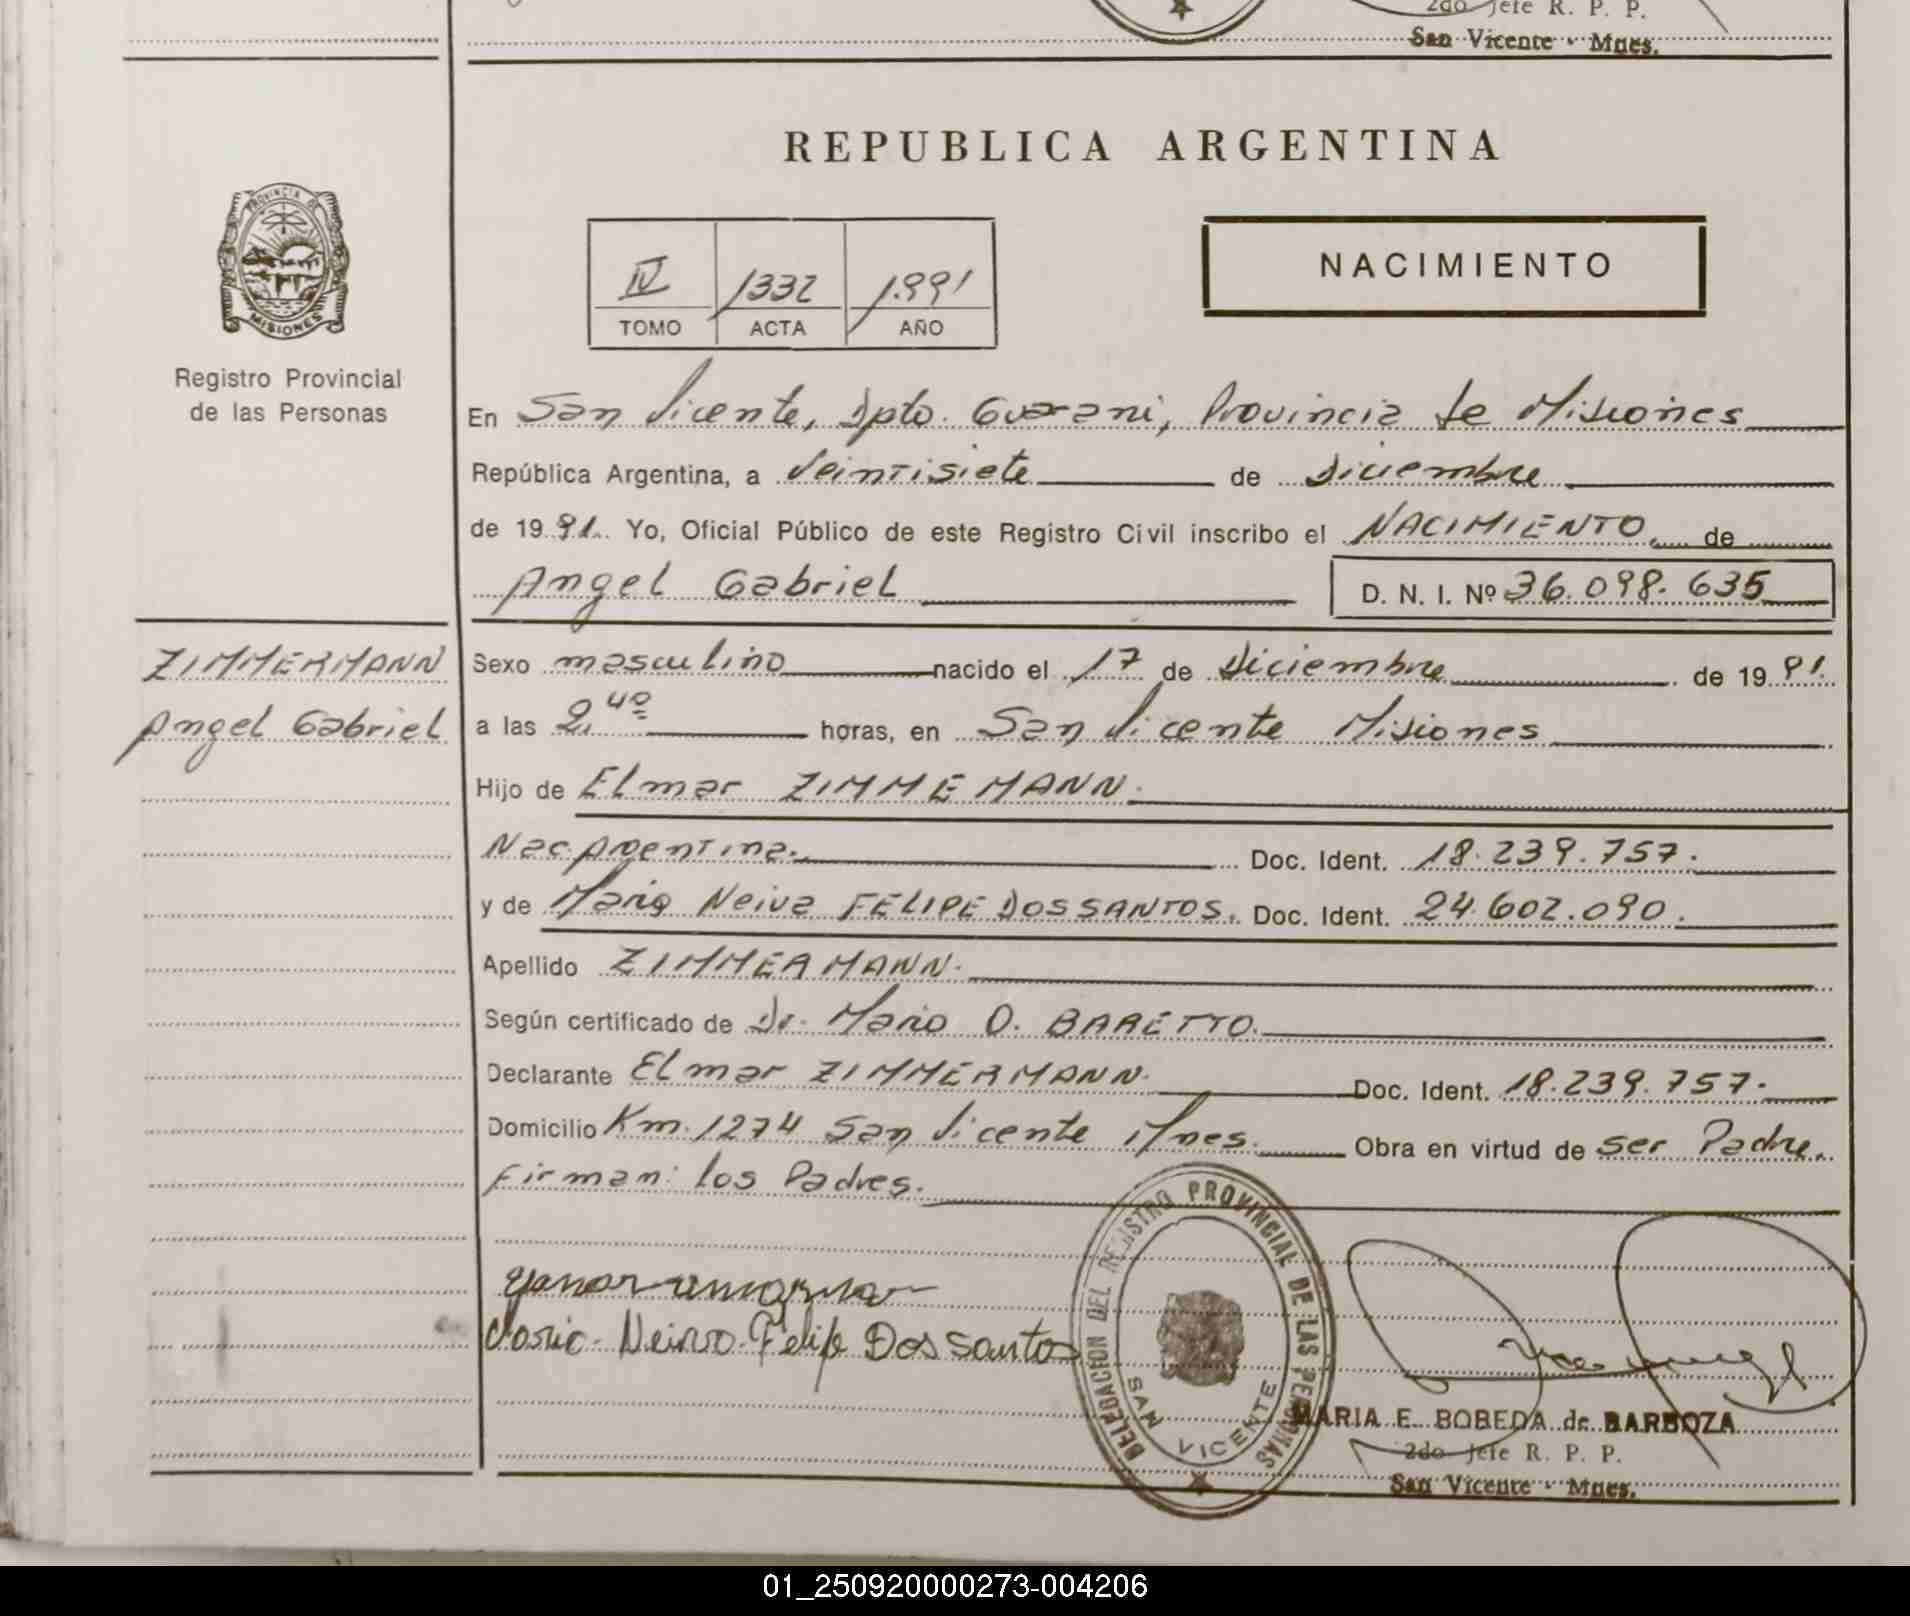 2do Jefe R. P. P.
San Vicente - Mnes.
REPUBLICA ARGENTINA
PROVINCIA DE
MISIONES
Registro Provincial
de las Personas
IV 1332 1.991
TOMO ACTA AÑO
NACIMIENTO
En San Vicente, Dpto. Guarani, Provincia de Misiones
República Argentina, a Veintisiete de Diciembre
de 1991. Yo, Oficial Público de este Registro Civil inscribo el NACIMIENTO. de
Angel Gabriel D. N. I. Nº 36.098.635
ZIMMERMANN
Angel Gabriel
Sexo masculino nacido el 17 de Diciembre de 1991.
a las 2,40 horas, en San Vicente Misiones
Hijo de Elmar ZIMMEMANN.
Nac. Argentina. Doc. Ident. 18.239.757.
y de Maria Neiva FELIPE DOSSANTOS. Doc. Ident. 24.602.090.
Apellido ZIMMERMANN.
Según certificado de Dr. Mario O. BARETTO.
Declarante Elmar ZIMMERMANN. Doc. Ident. 18.239.757.
Domicilio Km. 1274 San Vicente Mnes. Obra en virtud de ser Padre.
Firman: los Padres.
Maria Neiva Felipe Dos Santos
DELEGACION DEL REGISTRO PROVINCIAL DE LAS PERSONAS
SAN VICENTE
MARIA E. BOBEDA de BARBOZA
2do Jefe R. P. P.
San Vicente - Mnes.
01_250920000273-004206